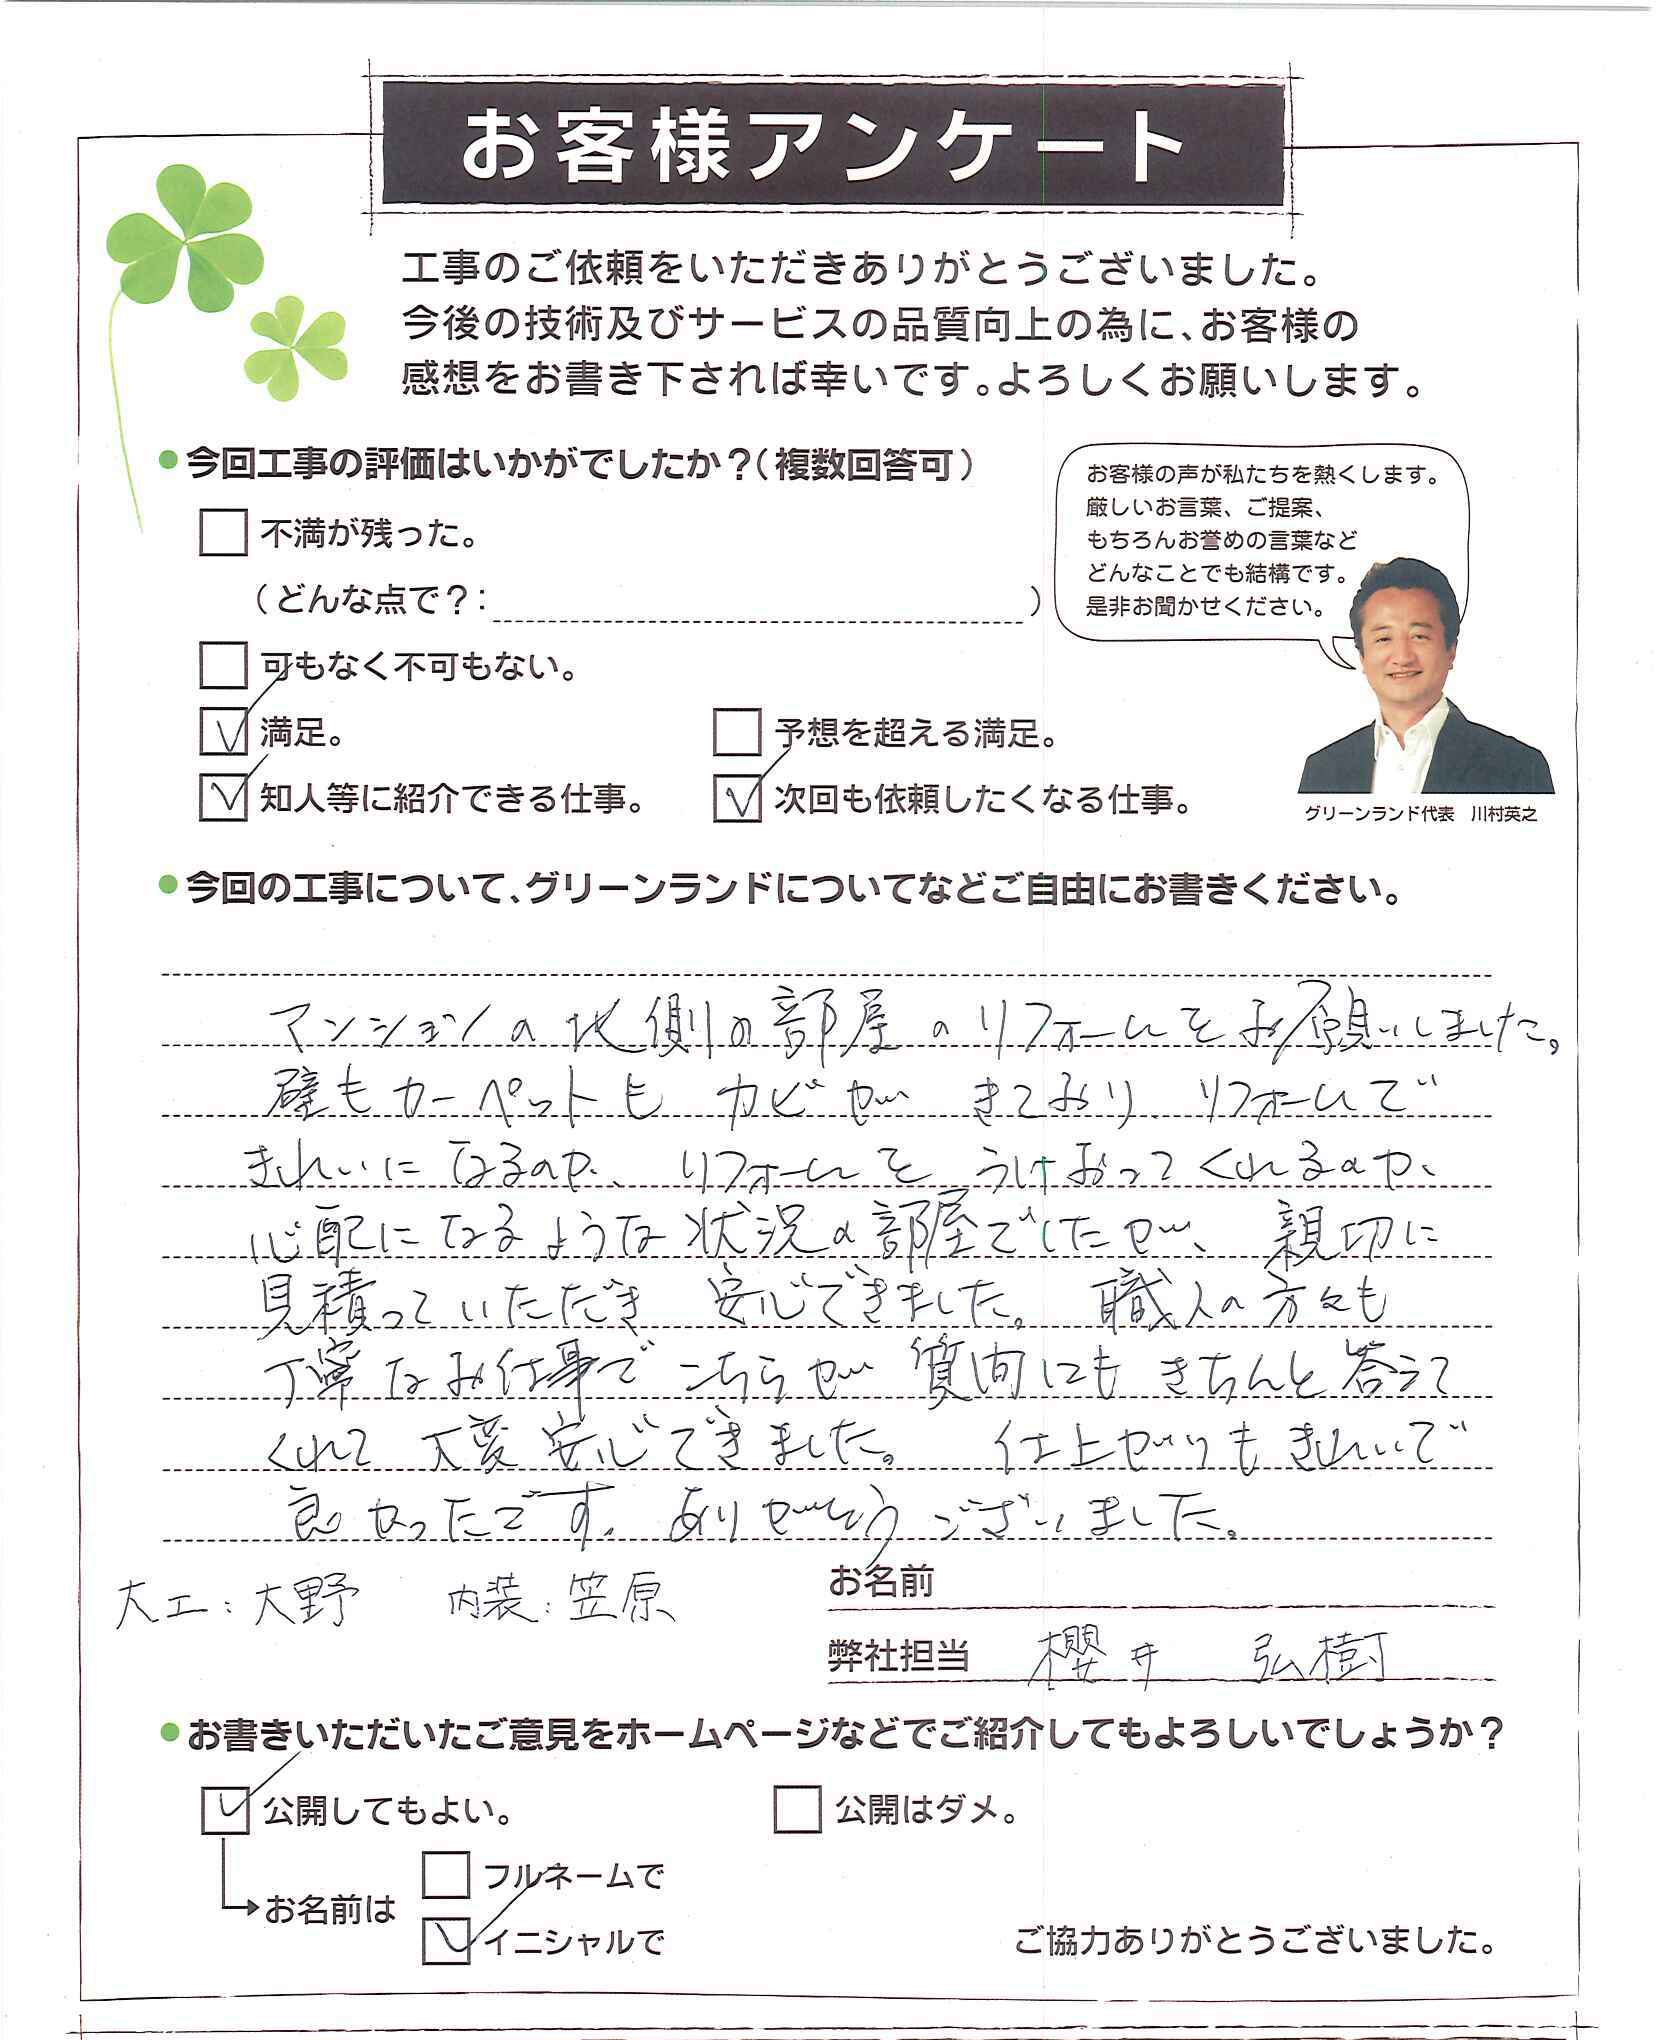 お客様アンケート
工事のご依頼をいただきありがとうございました。
今後の技術及びサービスの品質向上の為に、お客様の
感想をお書き下されば幸いです。よろしくお願いします。
●今回工事の評価はいかがでしたか？（複数回答可）
不満が残った。
（どんな点で？：　）
可もなく不可もない。
満足。
予想を超える満足。
知人等に紹介できる仕事。
次回も依頼したくなる仕事。
お客様の声が私たちを熱くします。
厳しいお言葉、ご提案、
もちろんお誉めの言葉など
どんなことでも結構です。
是非お聞かせください。
グリーンランド代表　川村英之
●今回の工事について、グリーンランドについてなどご自由にお書きください。
マンションの北側の部屋のリフォームをお願いしました。
壁もカーペットも カビが きており、リフォームで
きれいになるのか、リフォームを うけおってくれるのか、
心配になるような状況の部屋でしたが、親切に
見積っていただき 安心できました。職人の方々も
丁寧なお仕事で こちらが 質問にも きちんと答えて
くれて 大変安心できました。 仕上がりもきれいで
良かったです。ありがとうございました。
大工：大野　内装：笠原
お名前
弊社担当　櫻井　弘樹
●お書きいただいたご意見をホームページなどでご紹介してもよろしいでしょうか？
公開してもよい。
公開はダメ。
お名前は
フルネームで
イニシャルで
ご協力ありがとうございました。